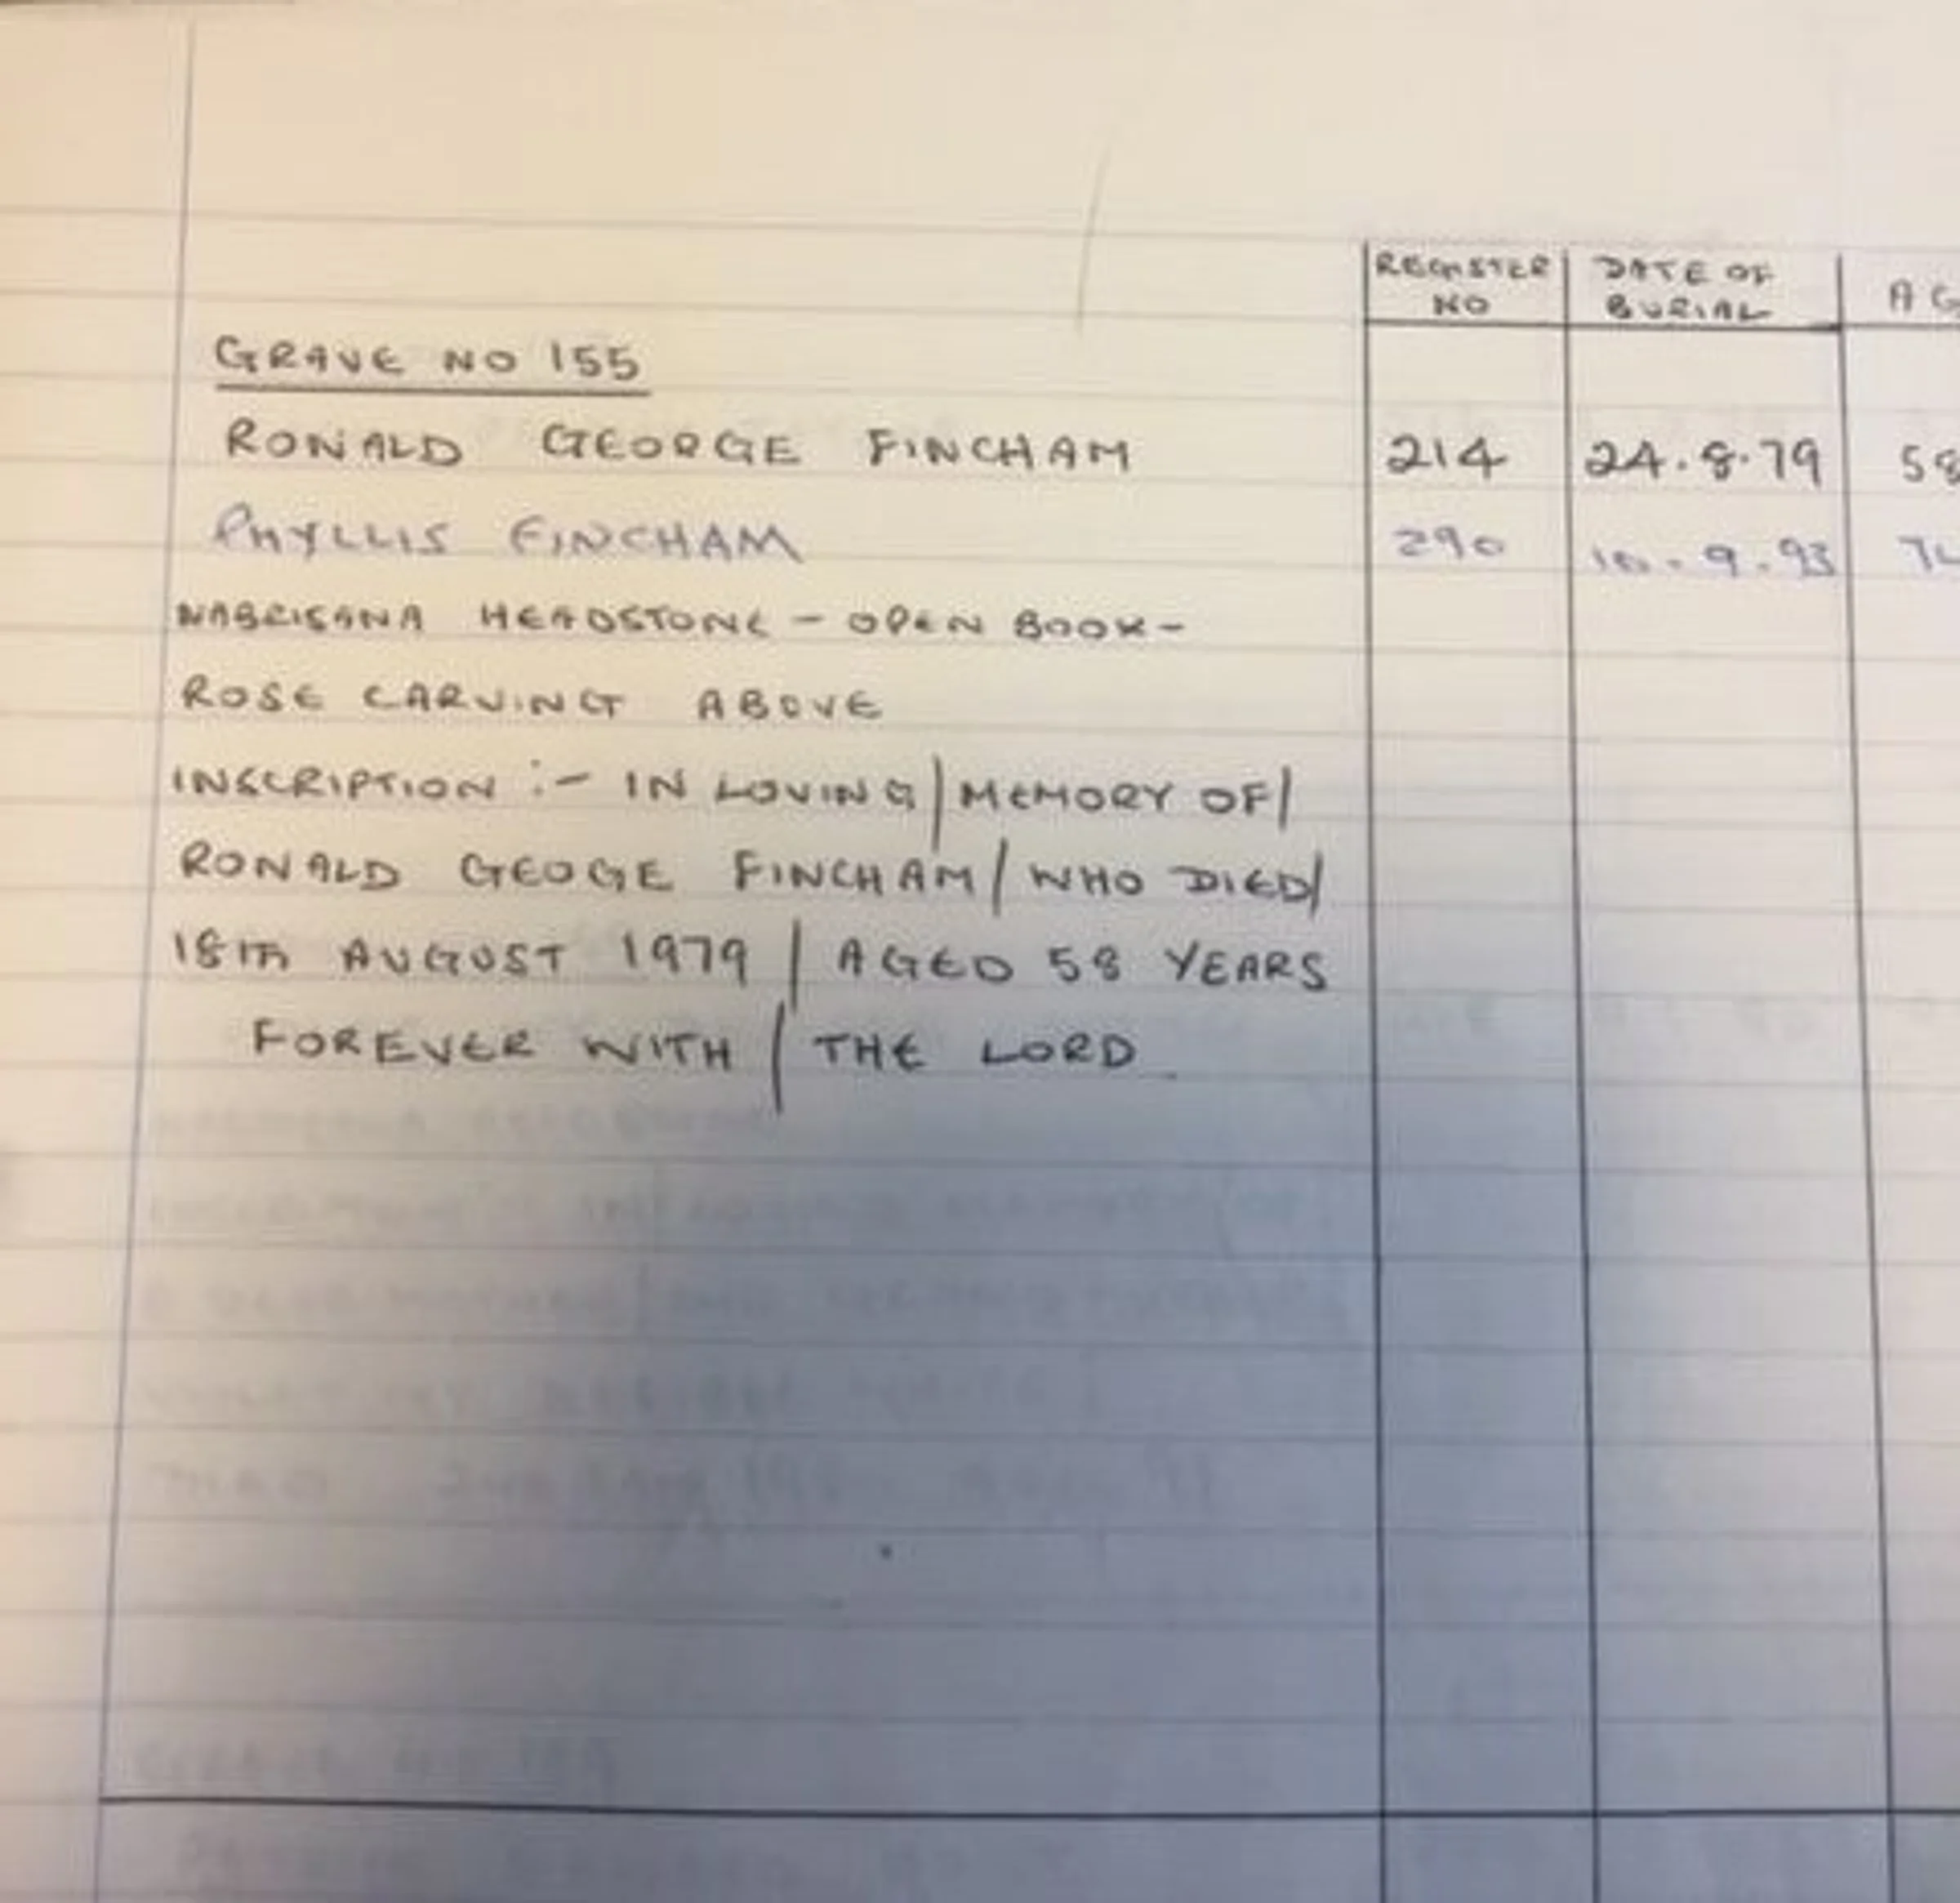 REGISTER NO
DATE OF BURIAL
AG
GRAVE NO 155
RONALD GEORGE FINCHAM 214 24.8.79 58
PHYLLIS FINCHAM 290 10.9.93
NABRISANA HEADSTONE - OPEN BOOK -
ROSE CARVING ABOVE
INSCRIPTION :- IN LOVING / MEMORY OF /
RONALD GEOGE FINCHAM / WHO DIED /
18TH AUGUST 1979 / AGED 58 YEARS
FOREVER WITH / THE LORD